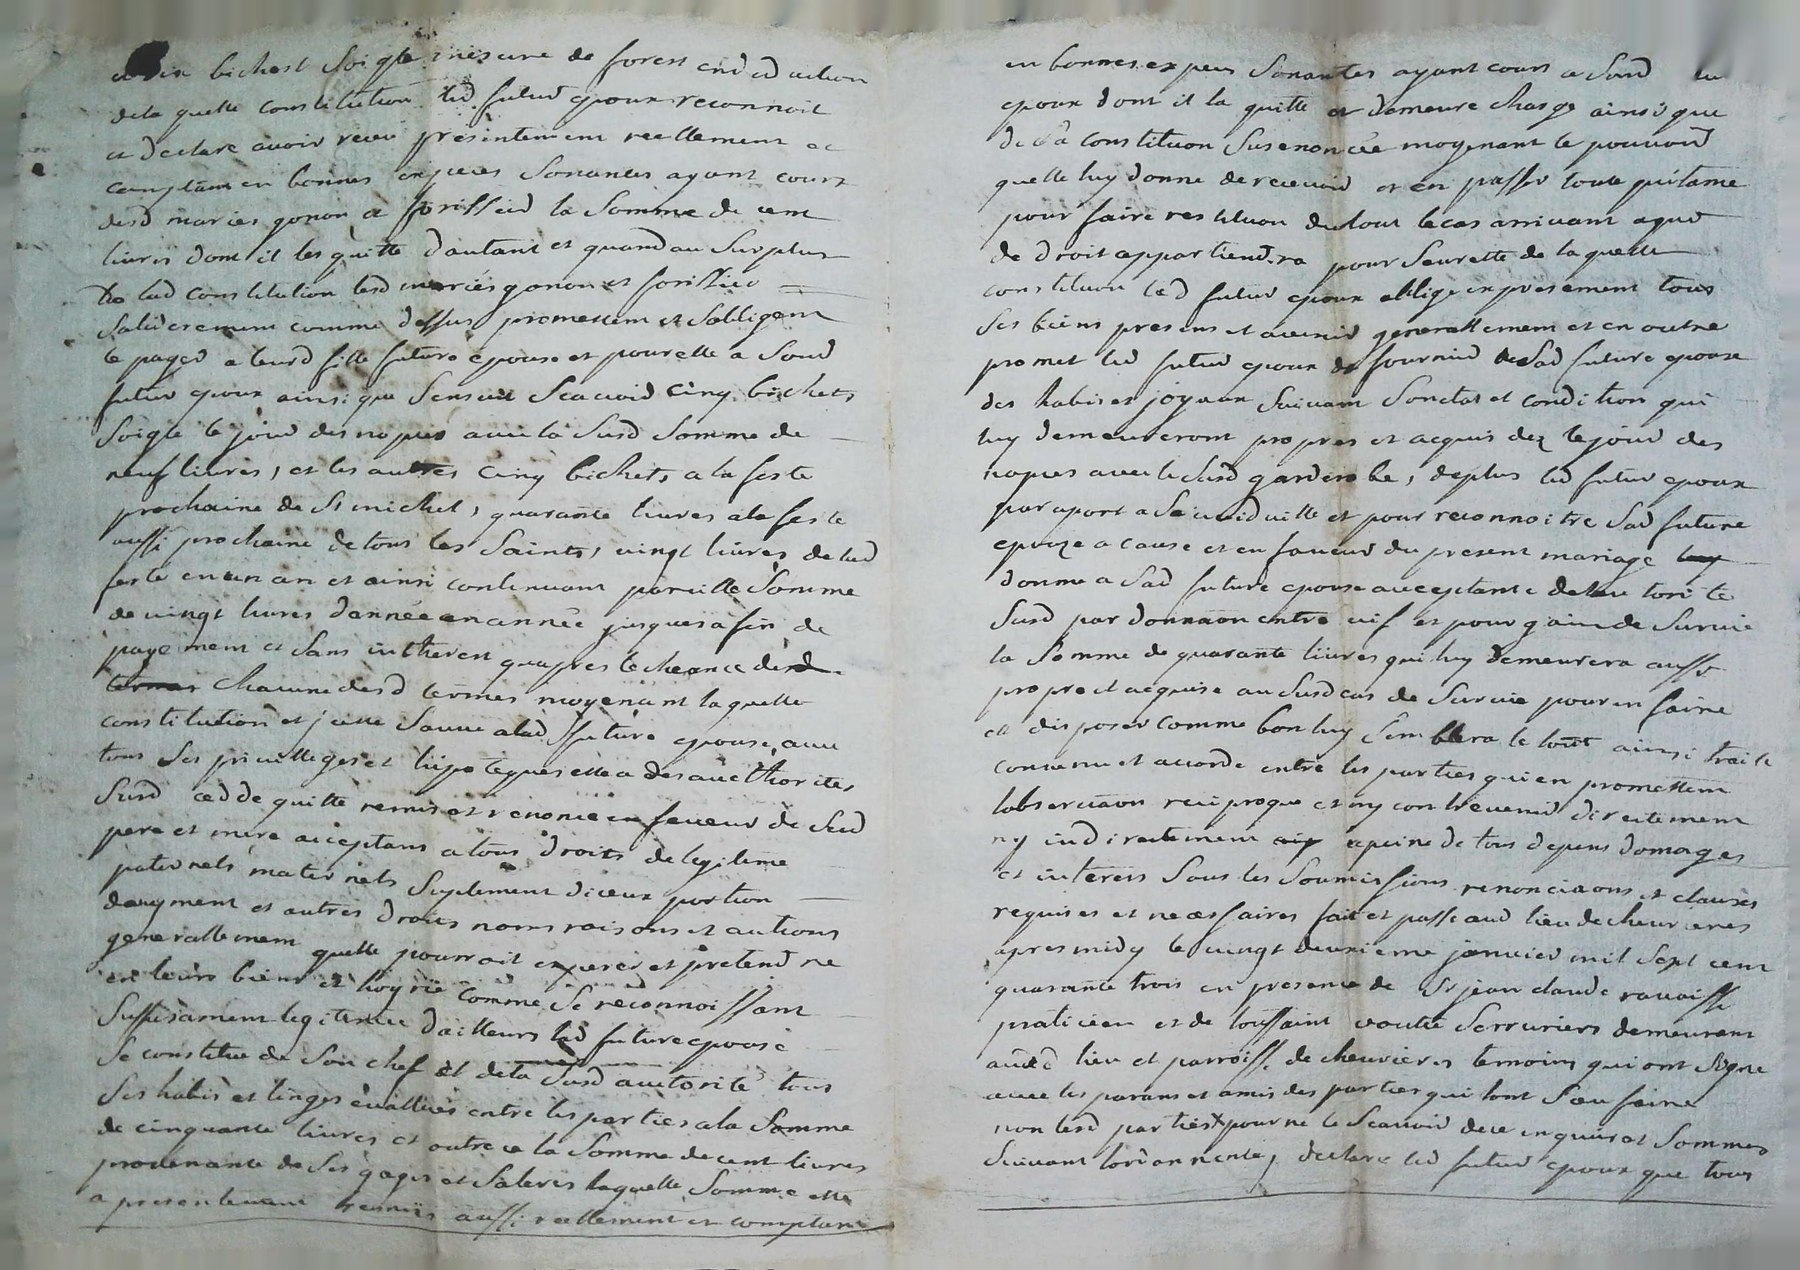 et dix bichest Soigle mesure de forest end ed action
dela quelle constitution led. futur epoux reconnoit
et declare avoir receu présintement reellement et
comptam en bonnes expeces Sonantes ayant cours
desd mariés gonon et forissied la Somme de cent
livres dont il les quitte dautant et quand au Surplus
de lad constitution lesd mariés gonon et forissied
Solideremem comme dessus promettem et Sobligem
le payed a leurd fille future epouse et pour elle a Sond
futur epoux ainsi que Sensuit Scavoid Cinq bichets
Soigle le jour des nopces avec la Susd Somme de
neuf livres, et les autres cinq bichets a la feste
prochaine de St michel, quarante livres ala feste
aussi prochaine de tous les Saints, vingt livres de lad
feste en un an et ainsi continuant pareille Somme
de vingt livres dannée en année jusques a fin de
payement et Sans intherest quapres lecheance desd
termes chacune desd termes moyenant la quelle
constitution et jcelle Sauve a lad future epouse, avec
tous Ses privilleges et hipoteques elle a des aucthorités
Susd cedde quitte remis et renonce en faveur de Sesd
pere et mere acceptans a tous droits de legitime
paternels maternels Suplement diceux portion
daugment et autres droits noms raisons et actions
generallemem quelle pourroit experer et pretendre
en leurs biens et hoyrie comme Se reconnoissant
Suffisament legitemée dailleurs lad future epouse
Se constitue de Son chef et dela Susd autorité tous
Ses habis et linges évallués entre les parties a la Somme
de cinquante livres et outre ce la Somme de cent livres
provenante de Ses gages et Saleres laquelle Somme elle
a presentement remis aussi reellement et comptam
en bonnes expeces Sonantes ayant cours a Sond fu
epoux dont il la quitte et demeure charge ainsi que
de Sa constituon Susenoncée moyenant le pouvoid
quelle luy donne de recevoid et en passer toute quitame
pour faire restituon dutout lecas arrivant a qui
de droit appartiendra pour Seurette de laquelle
constituon led futur epoux oblige expresement tous
Ses biens presens et avenid generallement et en outre
promet led futur epoux de fournid a Sad future epouse
des habis et joyaux Suivant Son etat et condition qui
luy demeureront propres et acquis dez le jour des
nopces avec le Susd garderobe, deplus led futur epoux
par aport a Sa viduitte et pour reconnoitre Sad future
epouze a cause et en faveur du present mariage luy
donne a Sad future epouse acceptante de lautorité
Susd par donnaon entre vif et pour gain de Survie
la Somme de quarante livres qui luy demeurera aussy
propre et acquise au Susd cas de Survie pour en faire
et disposer comme bon luy Semblera le tout ainsi traite
convenu et accordé entre les parties qui en promettem
lobservaon reciproque et ny contrevenid directement
ny indirectement a peine de tous depens domages
et interets Sous les Soumissions renonciaons et clauses
requises et necessaires fait et passe aud lieu de chevrieres
apres midy le vingt deuxieme janvier mil Sept cent
quarante trois en presence de Sr jean claude ravaisse
praticien et de toussaint voutte Serrurier demeurent
aud lieu et parroisse de chevrieres temoins qui ont Signe
avec les parans et amis des parties qui lont Sceu faire
non lesd parties pour ne le Scavoid de ce enquis et Sommes
Suivant lordonnence, declare led futur epoux que tous